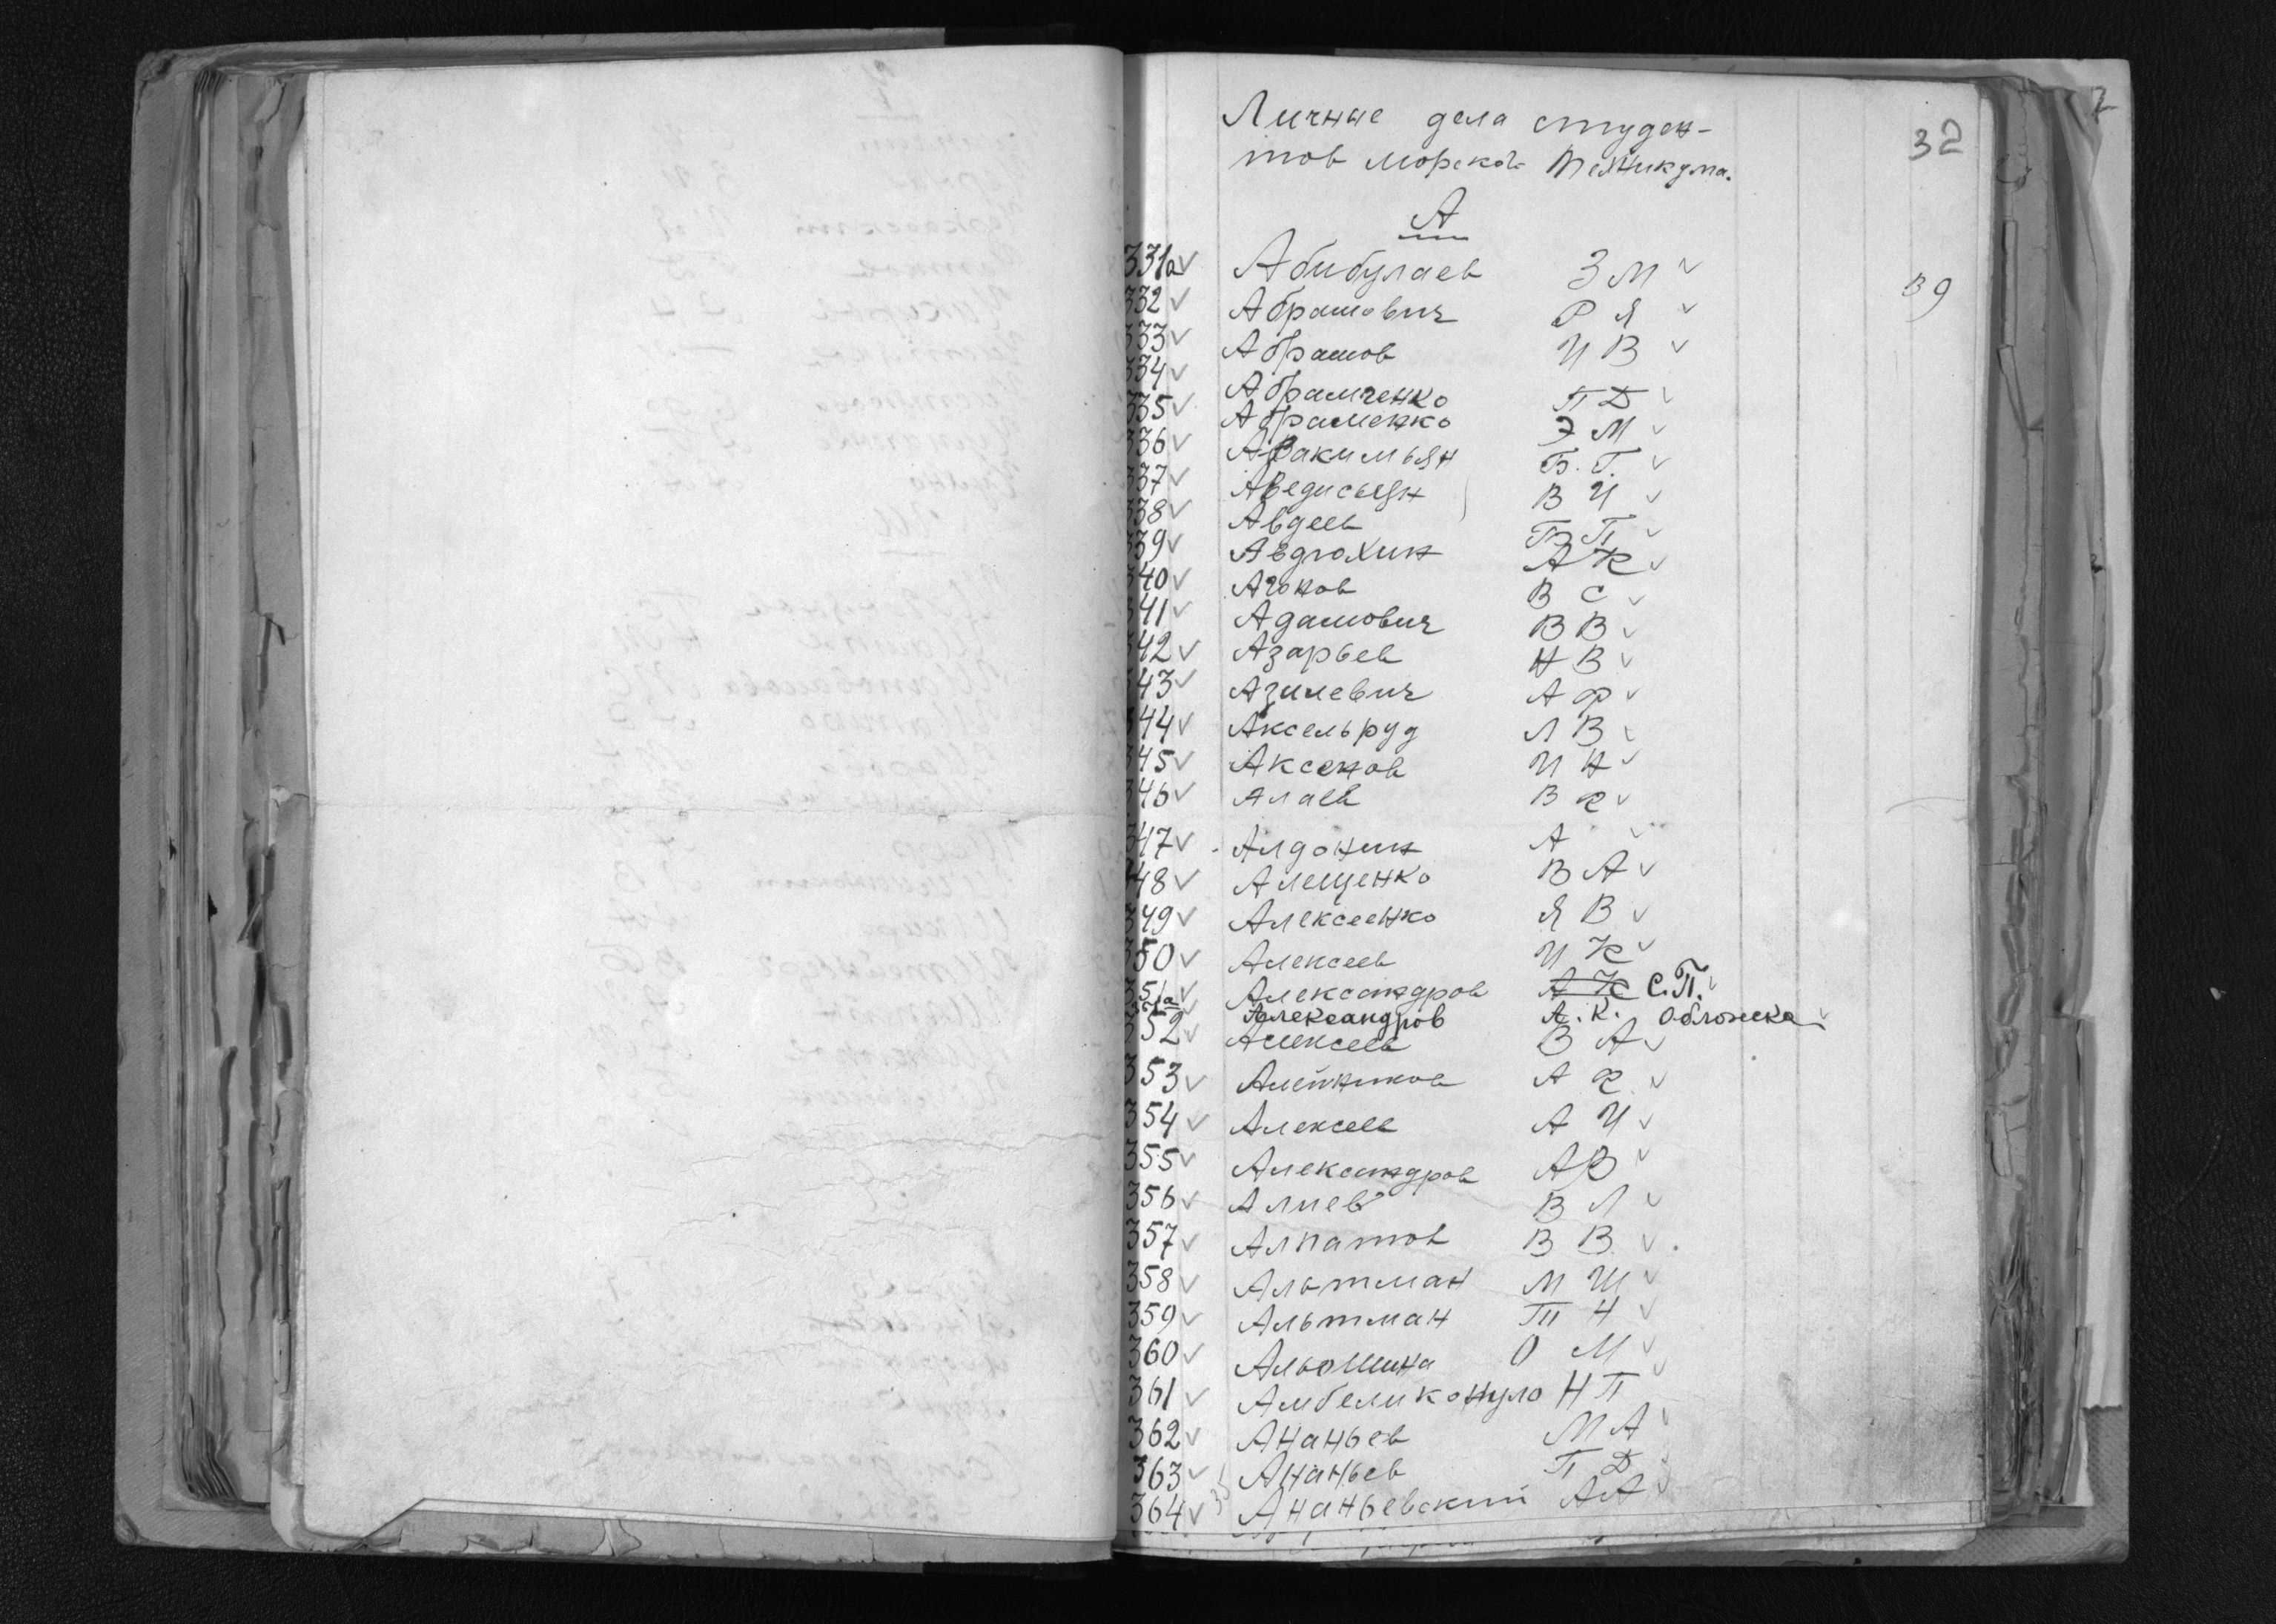 32
Личные дела студен-
тов морского техникума.
А
331а Абибулаев З М
39
332 Абрамович Р Я
333 Абрамов И В
334 Абрамченко П Д
335 Абраменко Э М
336 Авакимьян Б. Г.
337 Аведисьян В И
338 Авдеев Г П
339 Авдюхин А К
340 Агонов В С
341 Адамович В В
342 Азарьев Н В
343 Азилевич А Ф
344 Аксельруд Л В
345 Аксенов И Н
346 Алаев В К
347 Алдонин А
348 Алещенко В А
349 Алексеенко Я В
350 Алексеев И К
351 Александров А К С.П.
351а Александров А. К. обложка
352 Алексеев В А
353 Алейников А К
354 Алексеев А И
355 Александров А В
356 Алиев В Л
357 Алпатов В В
358 Альтман М Ш
359 Альтман П Н
360 Альошина О М
361 Амбеликопуло Н П
362 Ананьев М А
363 Ананьев П Д
364 Ананьевский А А